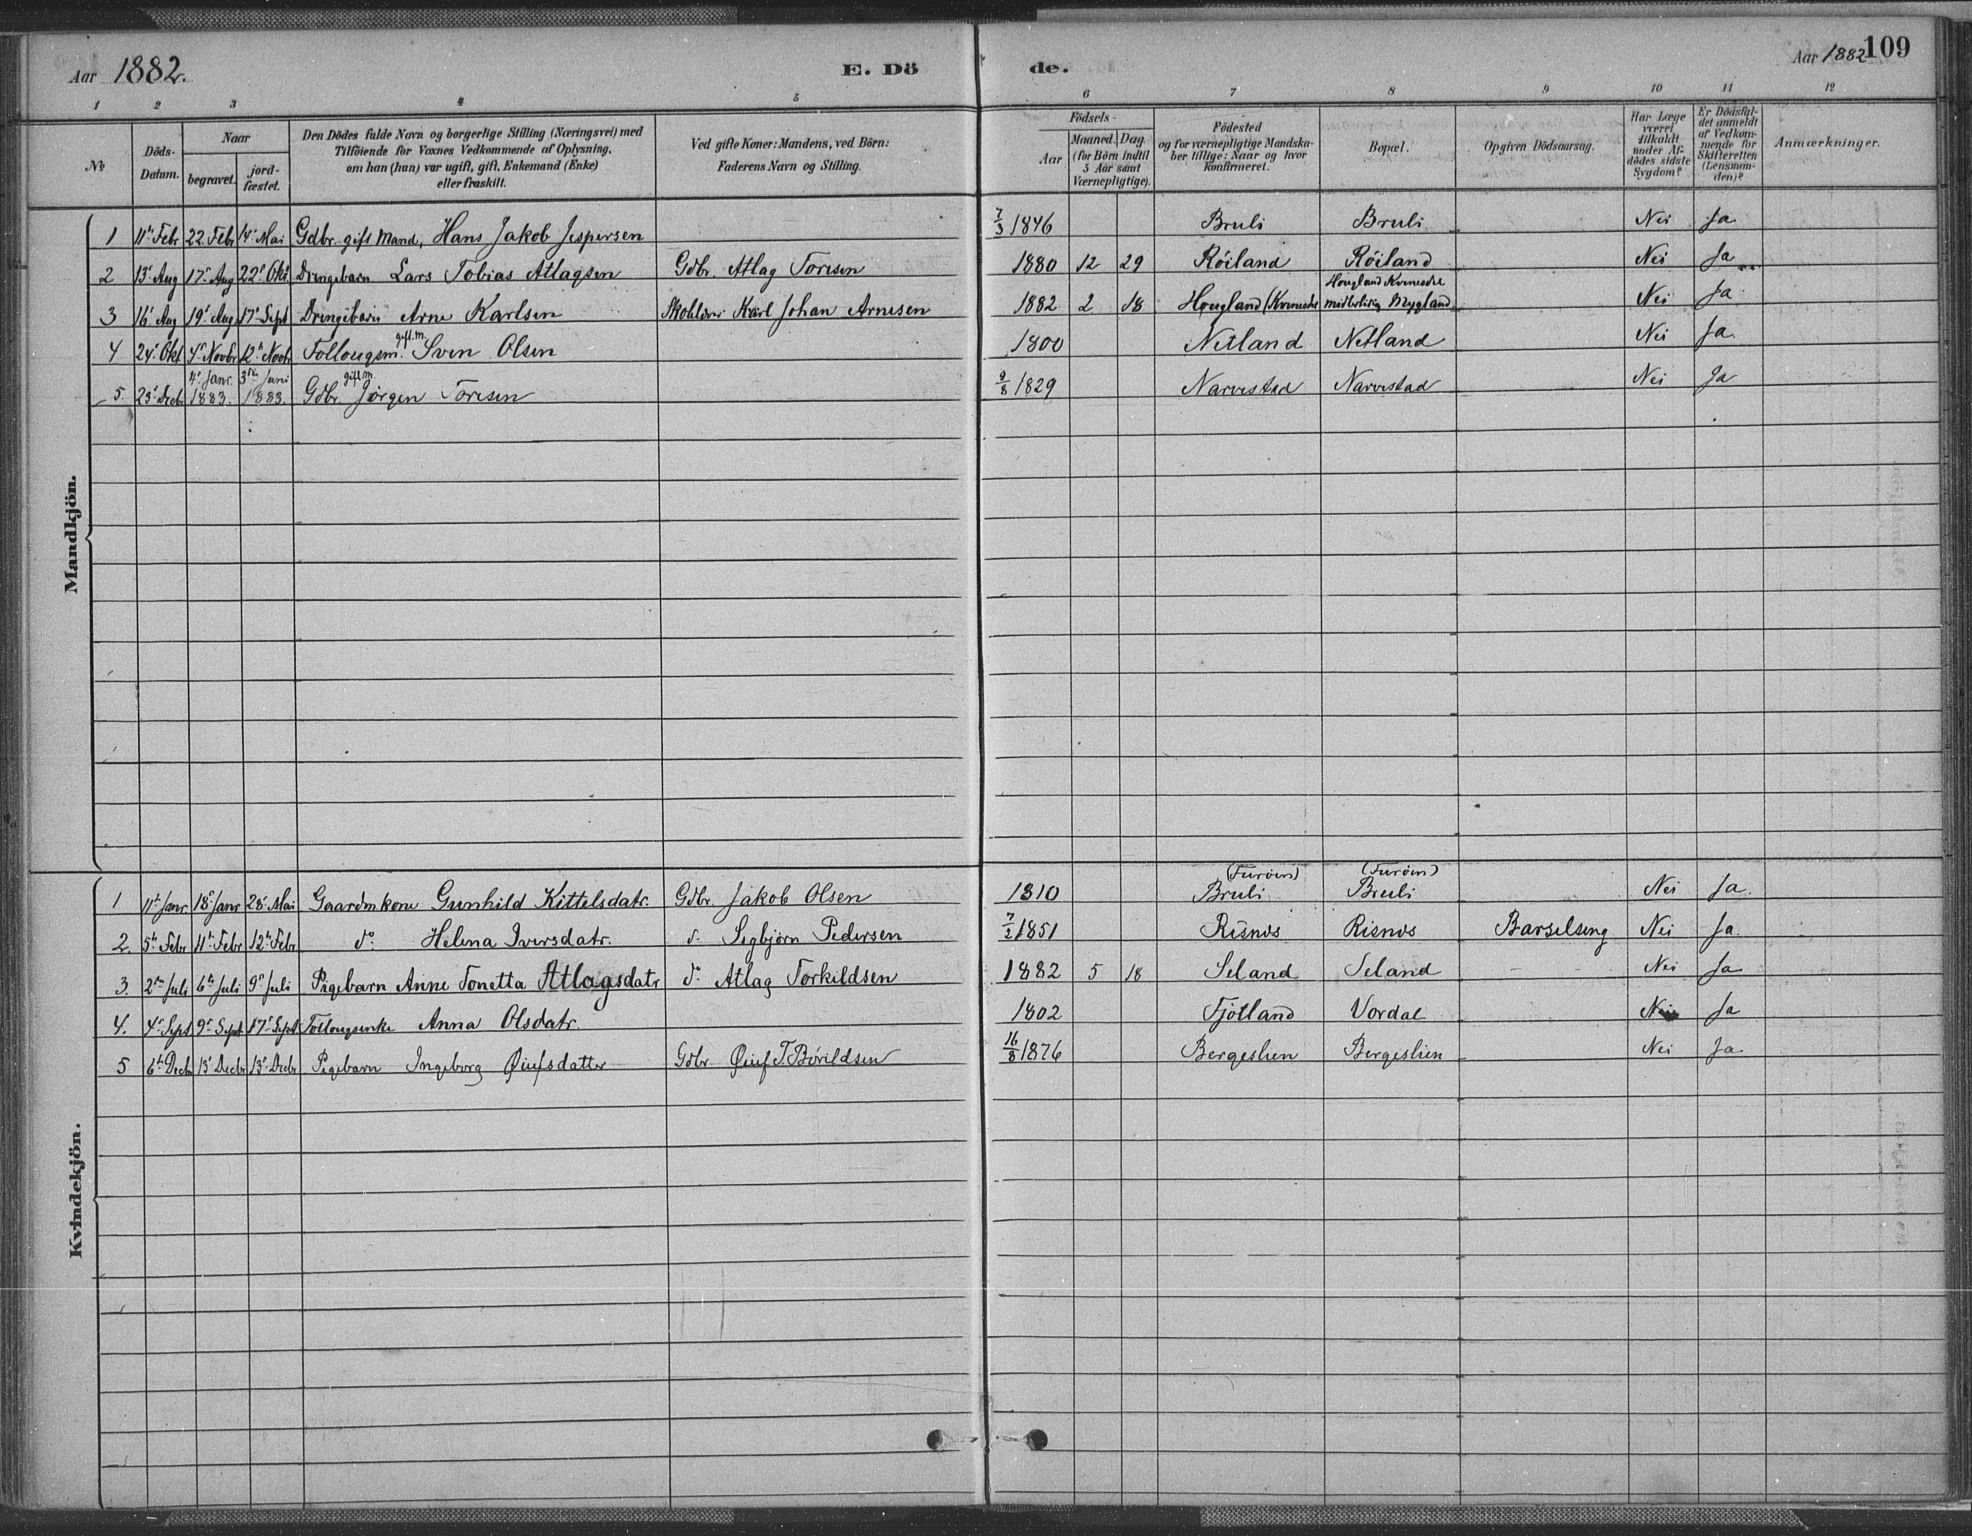 Aar 1882.
E. Dö
de.
Aar 1882 109
1 2 3 4 5 6 7 8 9 10 11 12
№
Döds-Datum.
Naar
begravet.
jord-fæstet.
Den Dödes fulde Navn og borgerlige Stilling (Næringsvei) med
Tilföiende for Voxnes Vedkommende af Oplysning,
om han (hun) var ugift, gift, Enkemand (Enke)
eller fraskilt.
Ved gifte Koner: Mandens, ved Börn:
Faderens Navn og Stilling.
Födsels-
Aar
Maaned. Dag.
(for Börn indtil
5 Aar samt
Værnepligtige).
Födested
og for værnepligtige Mandska-
ber tillige: Naar og hvor
konfirmeret.
Bopæl.
Opgiven Dödsaarsag.
Har Læge
været
tilkaldt
under Af-
dödes sidste
Sygdom?
Er Dödsfal-
det anmeldt
af Vedkom-
mende for
Skifteretten
(Lensman-
den)?
Anmærkninger.
Mandkjön.
1 11te Febr 22 Febr 14 Mai Gdbr. gift Mand, Hans Jakob Jespersen 7/3 1846 Bruli Bruli Nei Ja
2 13 Aug 17 Aug 22 Okt Drengebarn Lars Tobias Atlagsen Gdbr. Atlag Toresen 1880 12 29 Röiland Röiland Nei Ja
3 16 Aug 19 Aug 17 Sept Drengebarn Arne Karlsen Skolelærer Karl Johan Arnesen 1882 2 18 Hougland (Kvinesdal Hougland Kvinesdal midlertidig Mygland Nei Ja
4 24 Okt 4 Novbr 12te Novbr Follougsm. gift m. Sven Olsen 1800 Netland Netland Nei Ja.
5. 23 Decbr 4 Janr. 1883. 3die Juni 1883. Gdbr. gift m. Jörgen Toresen 9/8 1829 Narvestad Narvestad Nei Ja
Kvindekjön.
1 11te Janr 18 Janr 28 Mai Gaardmkone Gunhild Kittelsdatr. Gdbr. Jakob Olsen 1810 (Furöien) Bruli (Furöien) Bruli Nei Ja.
2. 5te Febr 11te Febr 12te Febr do Helena Iversdatr. do Segbjörn Pedersen 1851 Risnes Risnes Barselseng Nei Ja.
3. 2den Juli 6te Juli 9 Juli Pigebarn Anne Tonetta Atlagsdatr do Atlag Torkildsen 1882 5 18 Seland Seland - - Nei Ja
4. 4 Sept 9 Sept 17 Sept Follougsenke Anna Olsdatr. 1802 Fjotland Vordal Nei Ja
5 6te Decbr 13 Decbr 13 Decbr Pigebarn Ingeborg Øiufsdatter Gdbr Øiuf T. Börildsen 16/8 1876 Bergeslien Bergeslien Nei Ja.